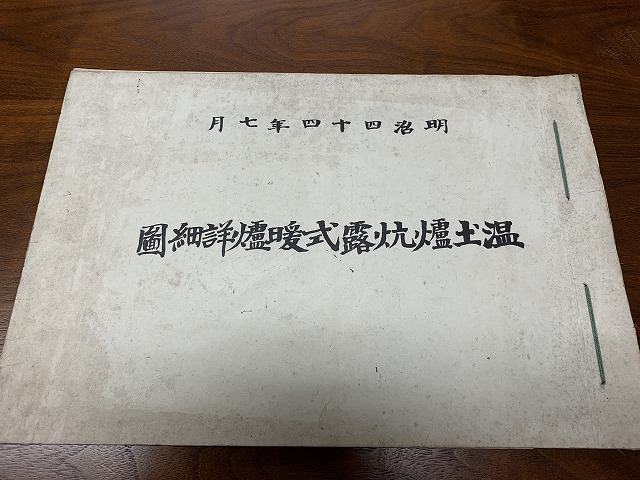 明治四十四年七月
温圡爐炕露式暖爐詳細圖